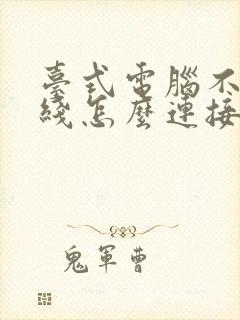 臺式電腦不
綫怎麼連接
鬼軍曹